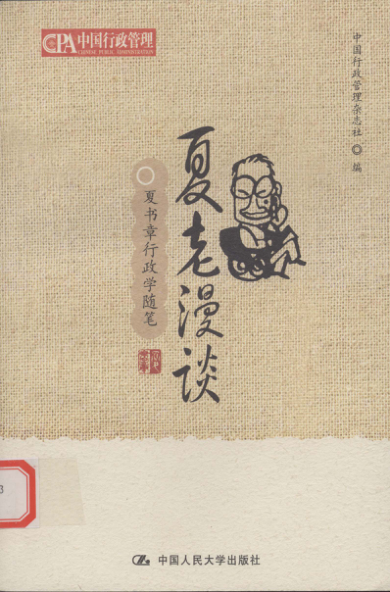 CPA中国行政管理
CHINESE PUBLIC ADMINISTRATION
中国行政管理杂志社 编
夏老漫谈
夏书章行政学随笔
3
中国人民大学出版社